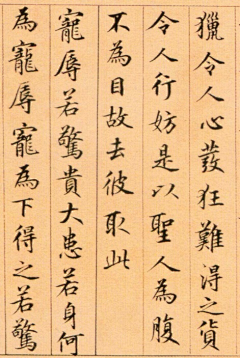 獵令人心發狂難得之貨
令人行妨是以聖人為腹
不為目故去彼取此
寵辱若驚貴大患若身何
為寵辱寵為下得之若驚